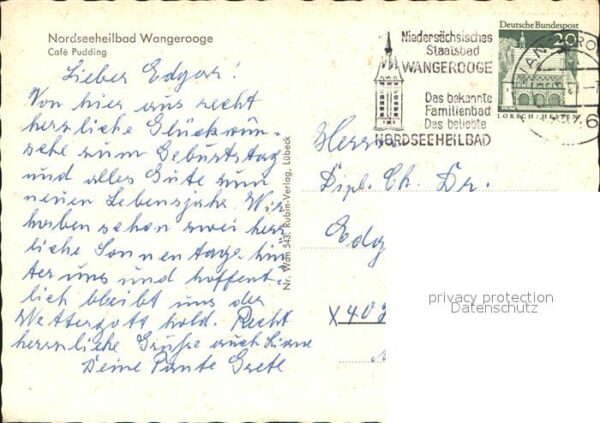 Nordseeheilbad Wangerooge
Café Pudding
Lieber Edgar!
Von hier aus recht
herrliche Glückwün-
sche zum Geburtstag
und alles Gute zum
neuen Lebensjahr. Wir
haben schon zwei herr
liche Sonnentage hin
ter uns und hoffent-
lich bleibt uns der
Wettergott hold. Recht
herrnliche Grüße auch Liane
Deine Tante Grete
Nr. Wan 543, Rubin-Verlag, Lübeck
Niedersächsisches
Staatsbad
WANGEROOGE
Das bekannte
Familienbad
Das beliebte
NORDSEEHEILBAD
Deutsche Bundespost
20
LORSCH/HESSEN
Herrn
Dipl. Ch. Dr.
Edg
X 402
privacy protection
Datenschutz